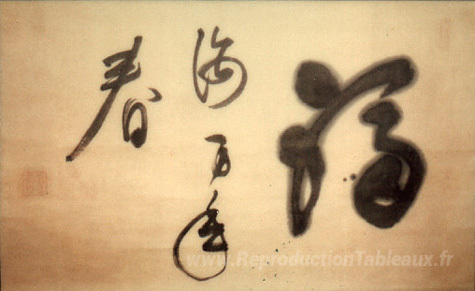 福
海万年
春
www.ReproductionTableaux.fr